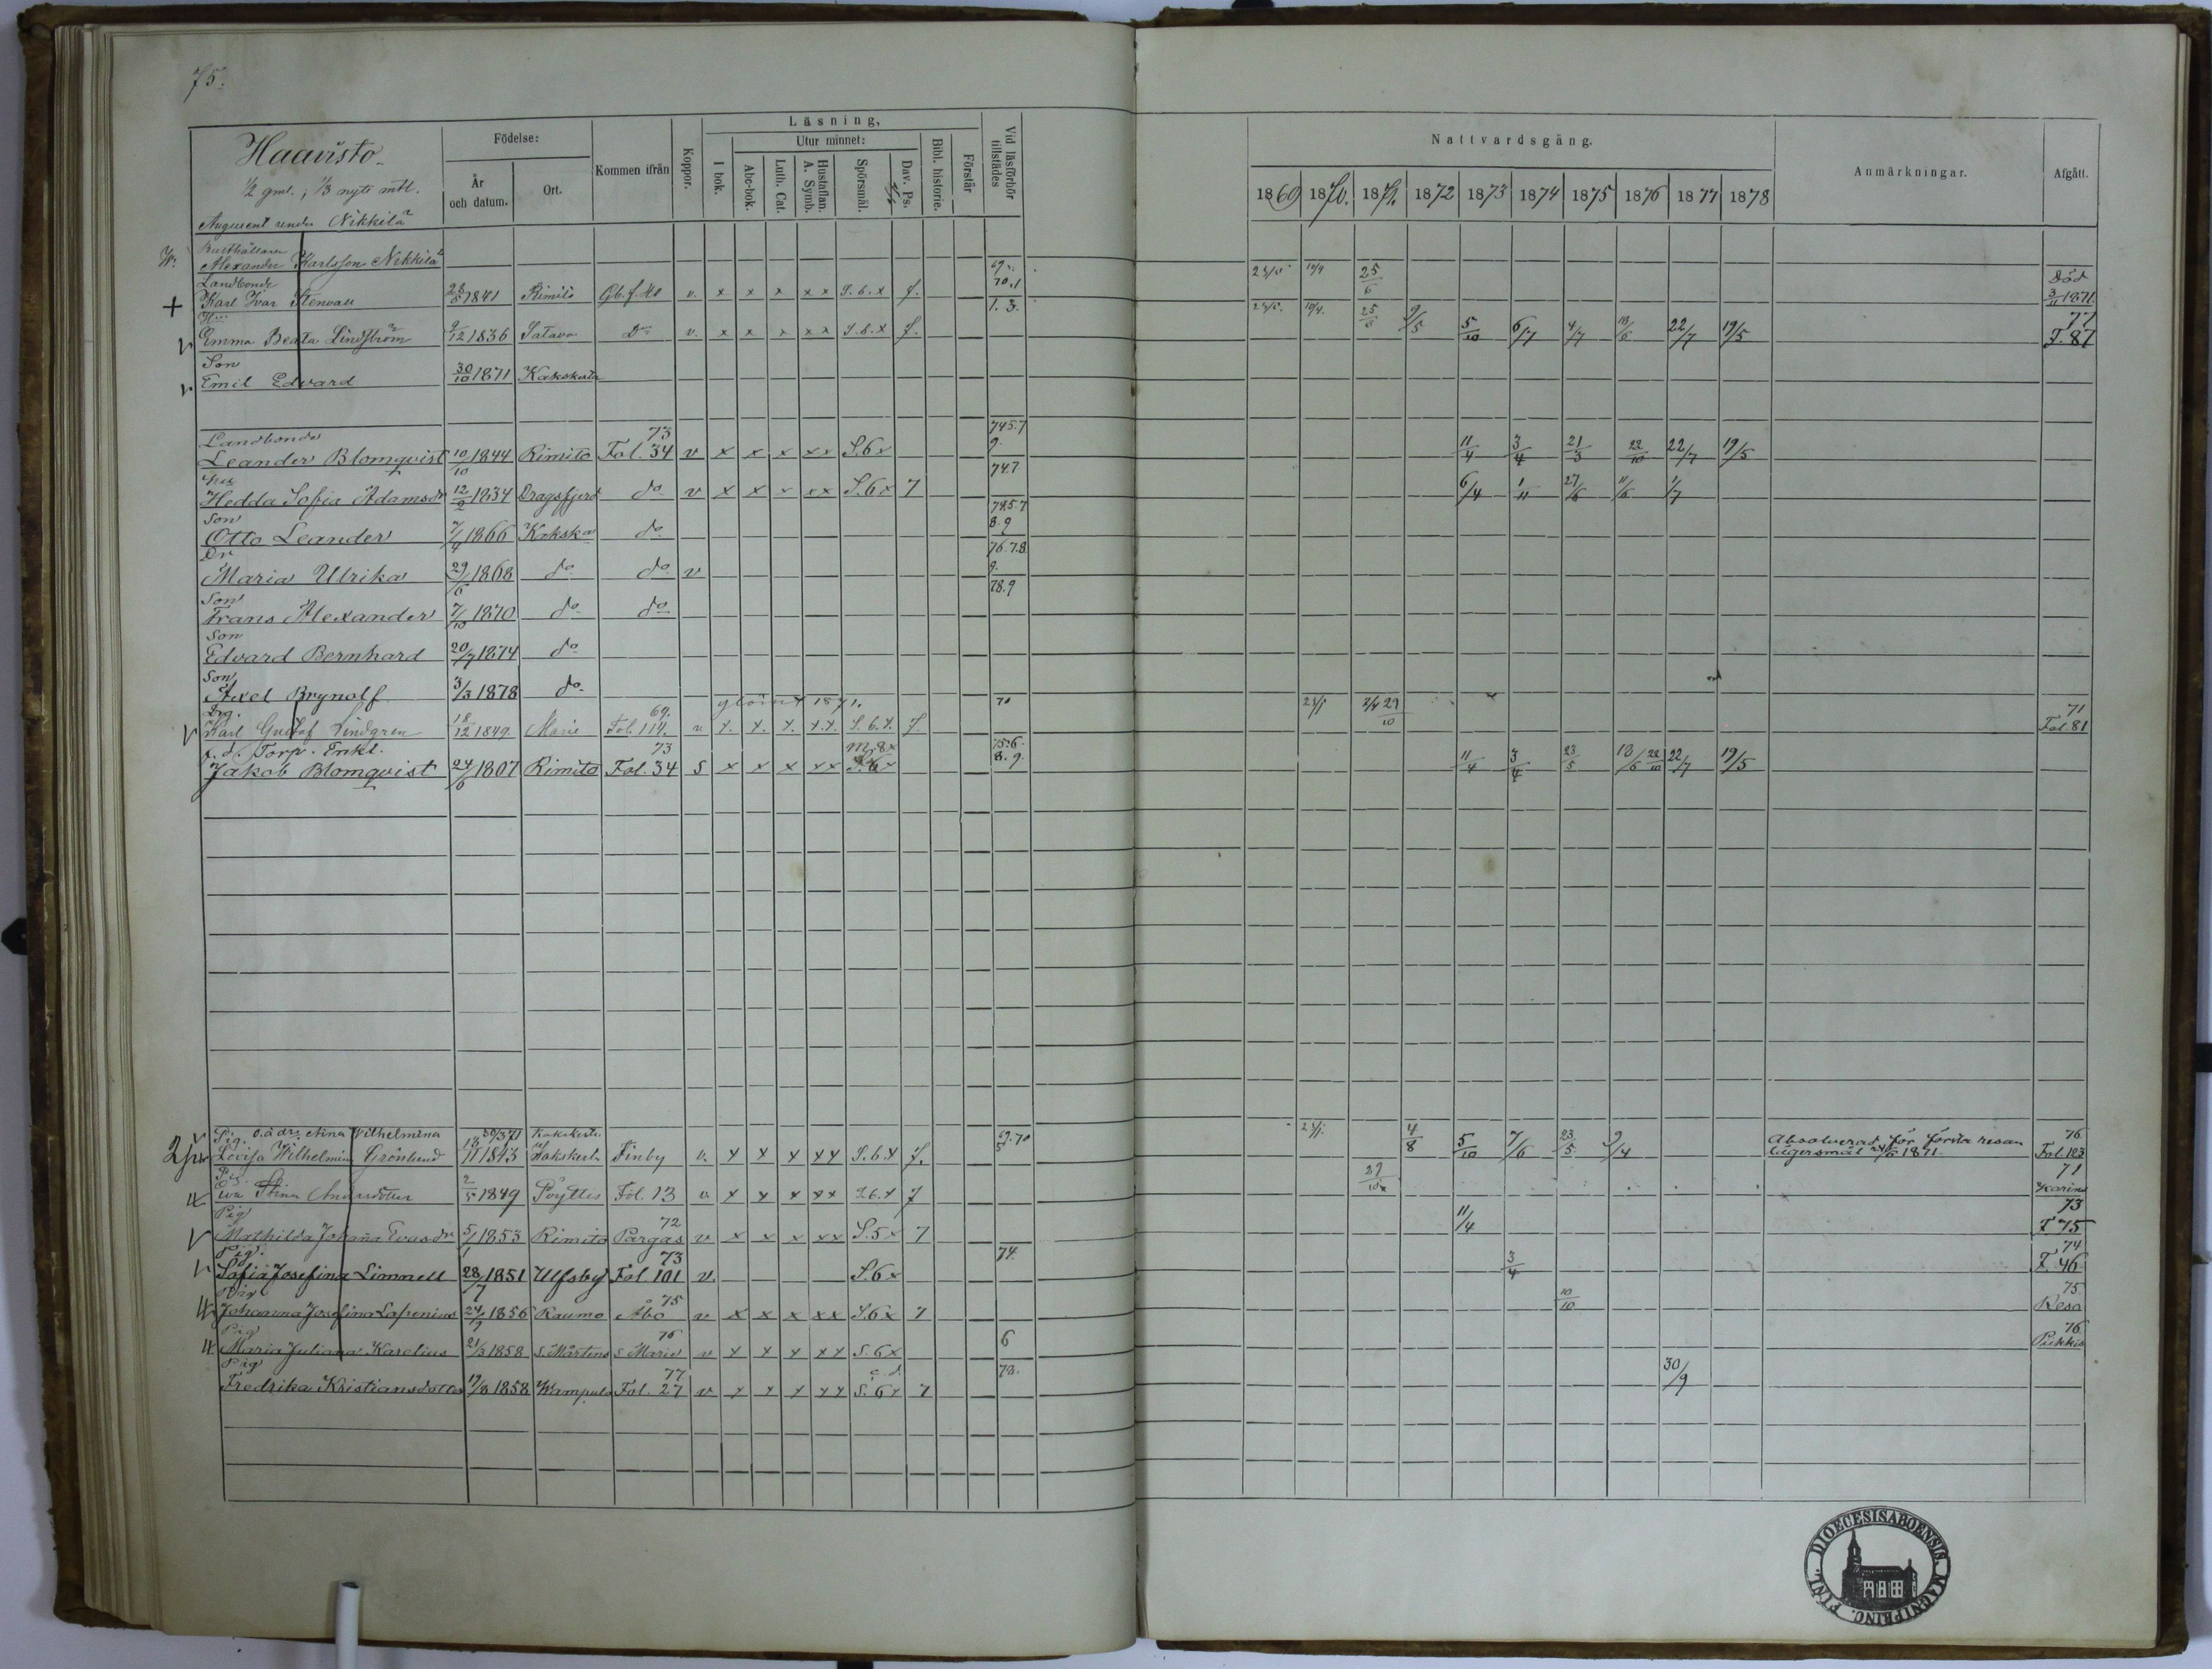 75.
Haavisto
1/2 gml., 1/3 nytt mtl.
Augment under Nikkilä
Födelse:
År och datum.
Ort.
Kommen ifrån
Koppor.
Läsning,
I bok.
Utur minnet:
Abc-bok.
Luth. Cat.
Hustaflan. A. Symb.
Spörsmål.
Dav. Ps.
Bibl. historie.
Förstår
Vid läsförhör tillstädes
Nattvardsgång.
1869 1870. 1871. 1872 1873 1874 1875 1876 1877 1878
Anmärkningar.
Afgått.
Alexander Karlsson Nikkilä
Landbonde 69. 70.1 23/5 10/4 25/6 Död
Karl Ivar Stenvall 28/5 1841 Rimito Gb. f. 40 v. x x x x x S. 6. x f. 3/11 1871.
1. 3. 77
Emma Beata Lindström 9/12 1836 Satava Do v. x x x x x S. 6. x f. 10/4. 25/6 9/5 5/10 6/7 4/7 18/6 22/7 19/5 F. 87
Son
Emil Edvard 30/10 1871 Kakskerta
Landbonde 73 745.7
Leander Blomqvist 10/10 1844 Rimito Fol. 34 v x x x x x S. 6 x 9. 11/4 3/4 21/3 22/10 22/7 19/5
Hu 747
Hedda Sofia Adamsdr 12/2 1834 Dragsfjerd do v x x x x x S. 6 x 7 6/4 1/11 27/6 11/6 1/7
Son 745.7
Otto Leander 7/4 1866 Kakska do 8.9
Dr 76.7.8
Maria Ulrika 29/6 1868 do do v 9.
Son 78.9
Frans Alexander 7/10 1870 do do
Son
Edvard Bernhard 20/7 1874 do
Son
Axel Brynolf 3/3 1878 do
Drg. 69. glömt 1871. 70 71
Karl Gustaf Lindgren 18/12 1849 Marie Fol. 114. v x. x. x. x. x. S. 6. x. f. 29/10 Fol. 81
f. d. Torp. Enkl. 73 75.6.
Jakob Blomqvist 24/6 1807 Rimito Fol. 34 S x x x x x S. 6 x 8. 9. 11/4 3/4 23/5 18/6 22/10 22/7 19/5
Pig. o. ä dr. Nina Wilhelmina 30/3 71 Kakskerta 69. 70 76
Lovisa Wilhelmina Grönlund 13/11 1843 Kakskerta Finby v. x x x x x S. 6 x f. 5 4/8 5/10 7/6 23/5 9/4 Absolverad för första resan lägersmål 24/6 1871. Fol. 123
Pig. 71
Eva Stina Andersdotter 2/5 1849 Pöyttis Fol. 13 v. x x x x x S. 6. x 7 29/10 Karins
Pig 72 73
Mathilda Johanna Evasdr 5/1 1853 Rimito Pargas v x x x x x S. 5 x 7 11/4 F 75
Pig. 73 74. 74
Sofia Josefina Limnell 28/7 1851 Ulfsby Fol. 101 v. S. 6 x 3/4 F. 46
Pig 75 75
Johanna Josefina Lassenius 24/9 1856 Raumo Åbo v x x x x x S. 6 x 7 10/10 Reso
Pig 76 76
Maria Juliana Karelius 21/3 1858 S. Mårtens S. Marie v x x x x x S. 6 x 6 Pikkis
Pig 77 c. d. 78.
Fredrika Kristiansdotter 17/8 1858 Kampula Fol. 27 v x x x x x S. 6 x 7 30/9
DIOECESIS ABOENSIS. MAGNI PRINC. FINL.